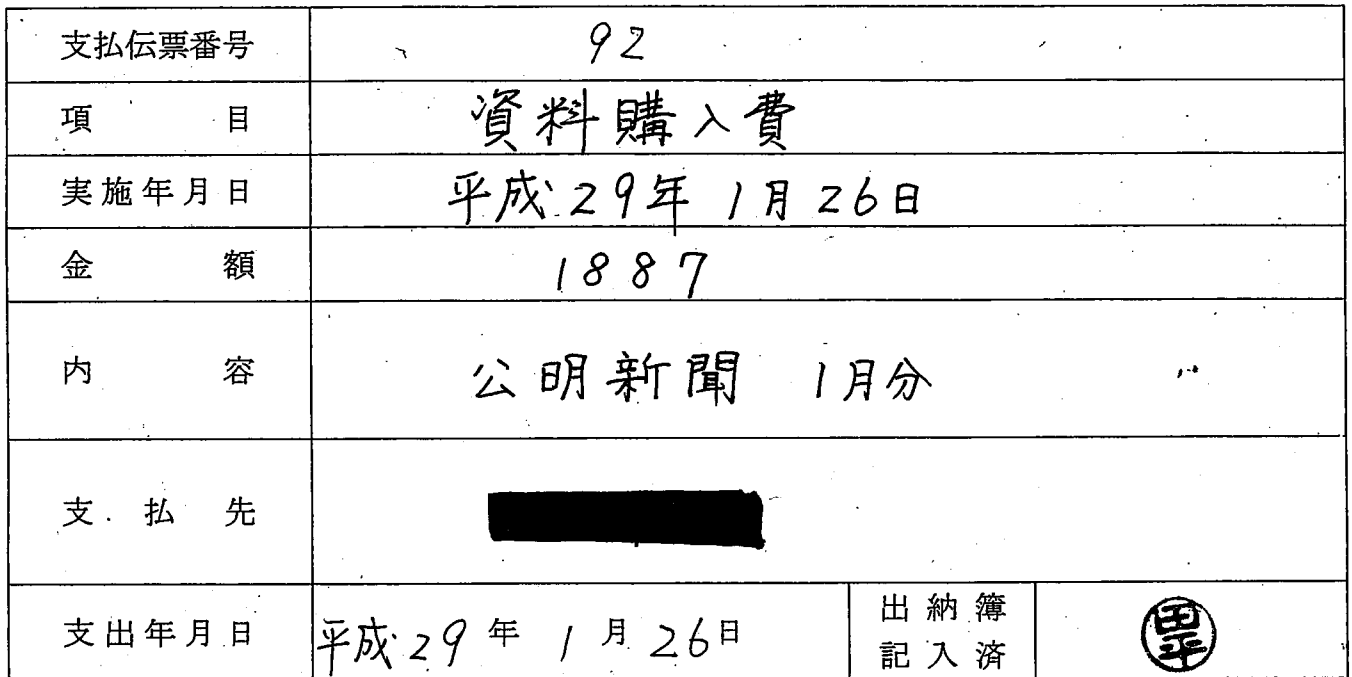 支払伝票番号 92
項目 資料購入費
実施年月日 平成29年1月26日
金額 1887
内容 公明新聞 1月分
支払先
支出年月日 平成29年1月26日 出納簿記入済 田平